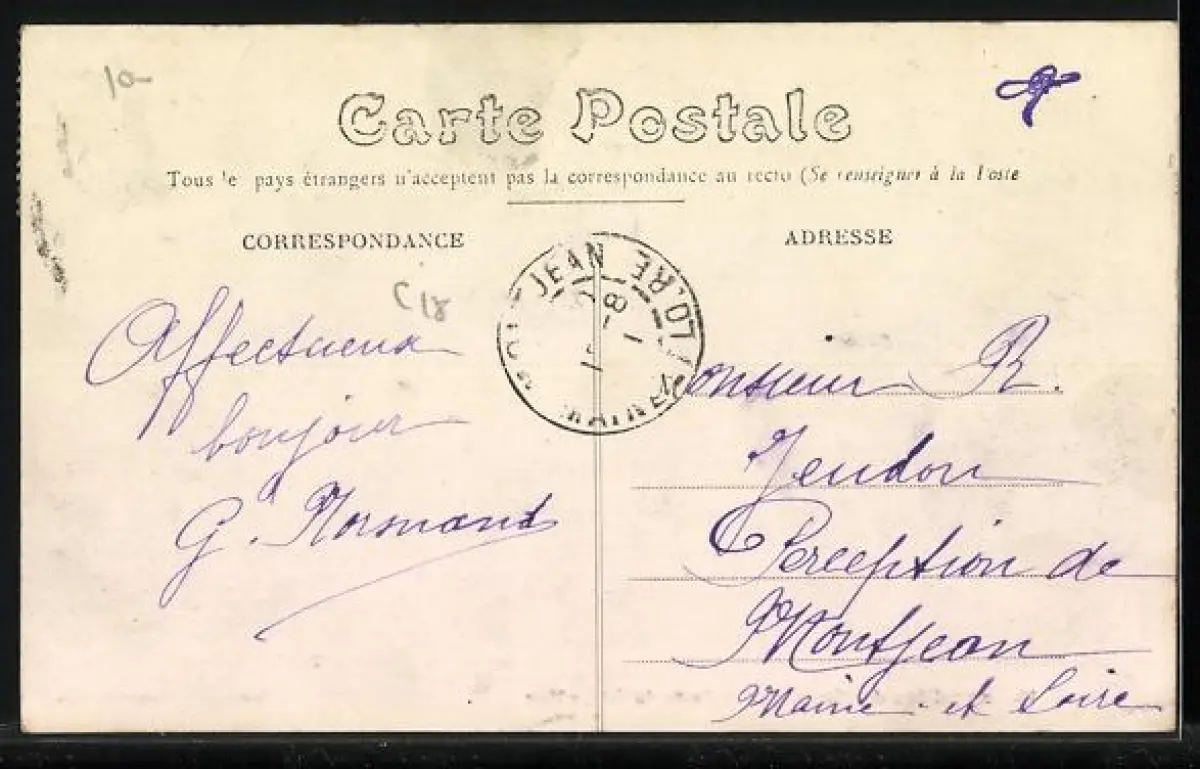 10-
Carte Postale
Tous le pays étrangers n'acceptent pas la correspondance au recto (Se renseigner à la Poste
CORRESPONDANCE
ADRESSE
C18
JEAN
Affectueux
bonjour
G. Normand
Monsieur R.
Jeudon
Perception de
Montjean
Maine et Loire